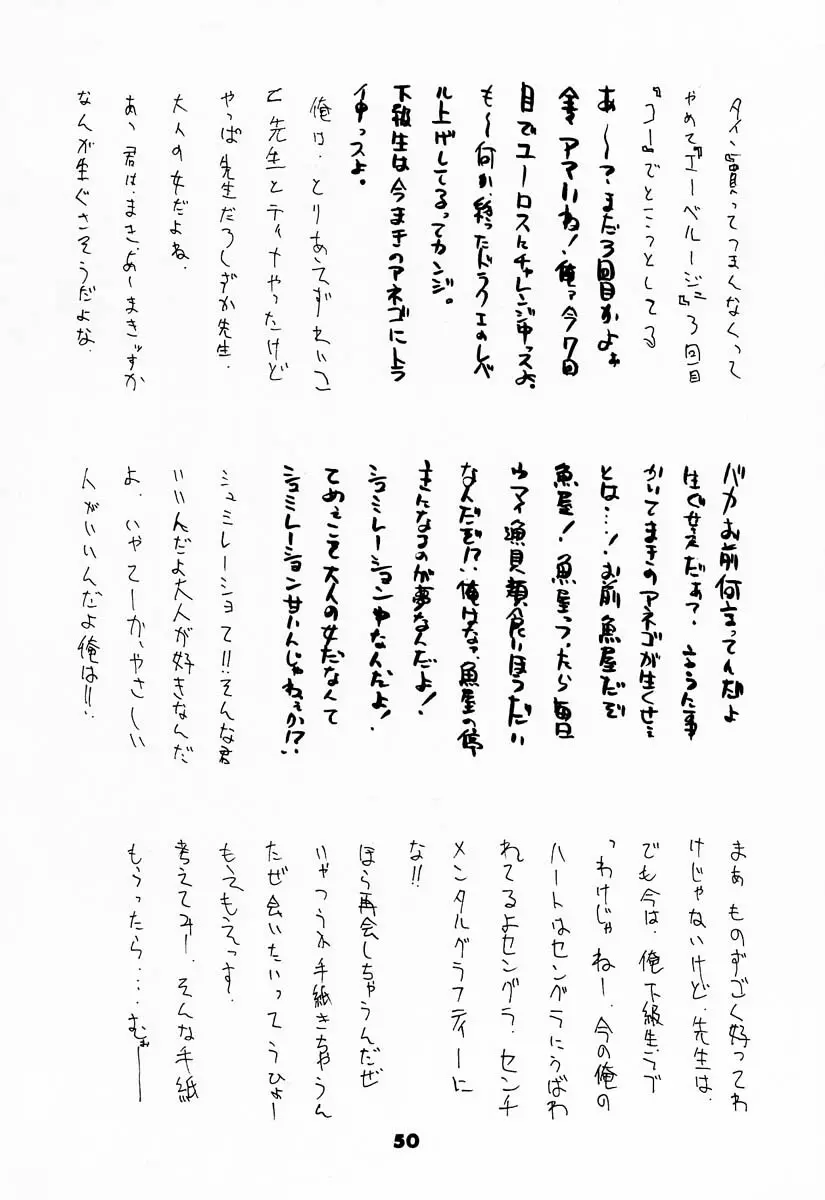 タイン買ってつまんなくって
やめて『エーベルージュ』3回目
『コー』でところとしてる
あ〜?まだろ回目かよぉ
金マアマいね!俺ァ今7回
目でユーロスにチャレンジ中っスよ。
も〜何か、終ったドラクエのレベ
ル上げしてるってカンジ。
下級生は今まきのアネゴにトラ
イ中っスよ。
俺は、とりあえずれいこ
先生とティナやったけど
やっぱ先生だろしずか先生、
大人の女だよね、
あゝ君は、まさ、めーまきッすか
なんか生ぐさそうだよな、
バカお前何言ってんだよ
生ぐせえだぁ?言うた事
かいてまきのアネゴが生くせえ
とは…!お前魚屋だぞ
魚屋!魚屋っつったら毎日
ウマイ漁貝類食いほうだい
なんだぞ!?俺はなァ、魚屋の停
主になるのが夢なんだよ!
シュミレーション中なんだよ!
てめぇこそ大人の女だなんて
シュミレーション甘いんじゃねぇか!?
シュミレーショて!!そんな君
いいんだよ大人が好きなんだ
よ、いやてーか、やさしい
人がいいんだよ俺は!!
まあ ものずごく好ってわ
けじゃないけど、先生は、
でも今は、俺下級生って
っわけじゃねー、今の俺の
ハートはセングラにうばわ
れてるよセングラ、センチ
メンタルグラフティーに
な!!
ほら再会しちゃうんだぜ
いゃつうか手紙きちゃうん
だぜ会いたいって うひょー
もえもえっす。
考えてみー、そんな手紙
もらったら…むぉー
50